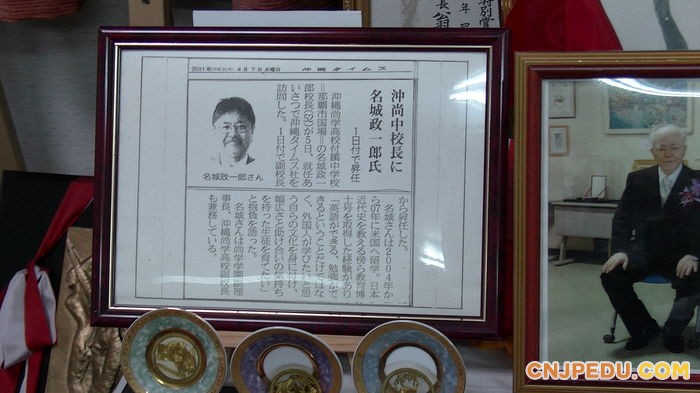 特別賞
長 翁
2011年(平成23年) 4月7日 木曜日 沖縄タイムス
沖尚中校長に
名城政一郎氏
1日付で昇任
沖縄尚学高校付属中学校
=那覇市国場=の名城政一
郎校長(52)が5日、就任あ
いさつで沖縄タイムス社を
訪問した。1日付で副校長
名城政一郎さん
から昇任した。
名城さんは2004年か
ら07年に米国へ留学。日本
近代史を教える傍ら教育博
士号を取得した経験があり
「英語ができる、勉強がで
きるということだけではな
く、外国人が学びたいと思
う自らの文化を身に付け、
幅広さと助け合いの気持ち
を持った生徒を育てたい」
と抱負を語った。
名城さんは尚学学園副理
事長、沖縄尚学高校副校長
も兼務している。
CNJPEDU.COM